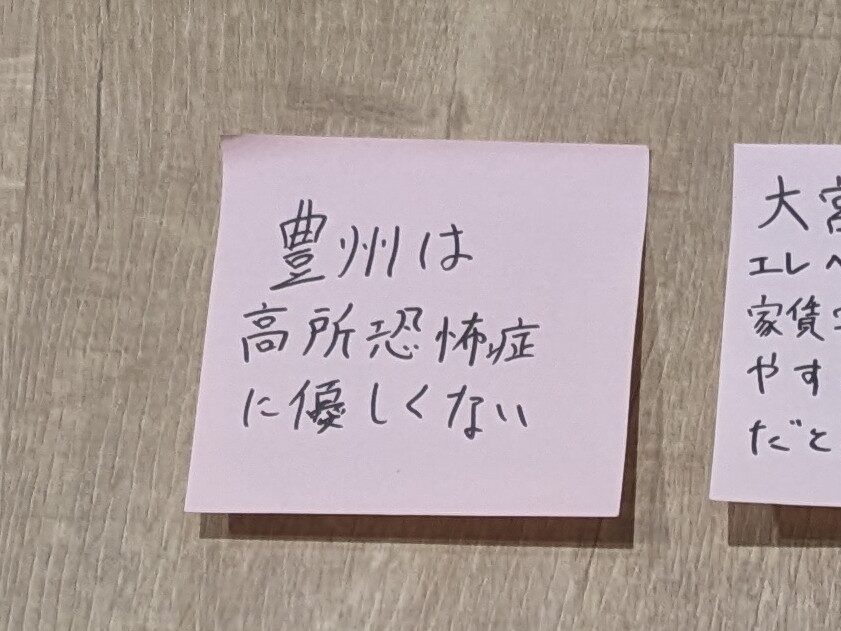 豊州は
高所恐怖症
に優しくない
大宮
エレ
家賃
やす
だと